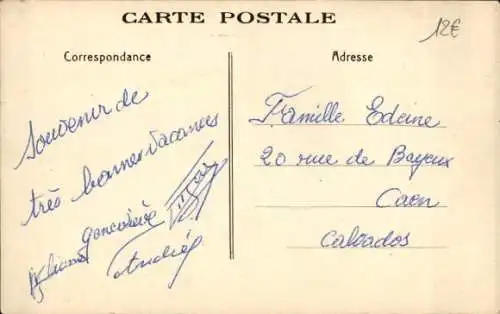 CARTE POSTALE
12€
Correspondance
Adresse
Souvenir de
très bonnes vacances
Geneviève
Andrée
Famille Edeine
20 rue de Bayeux
Caen
Calvados